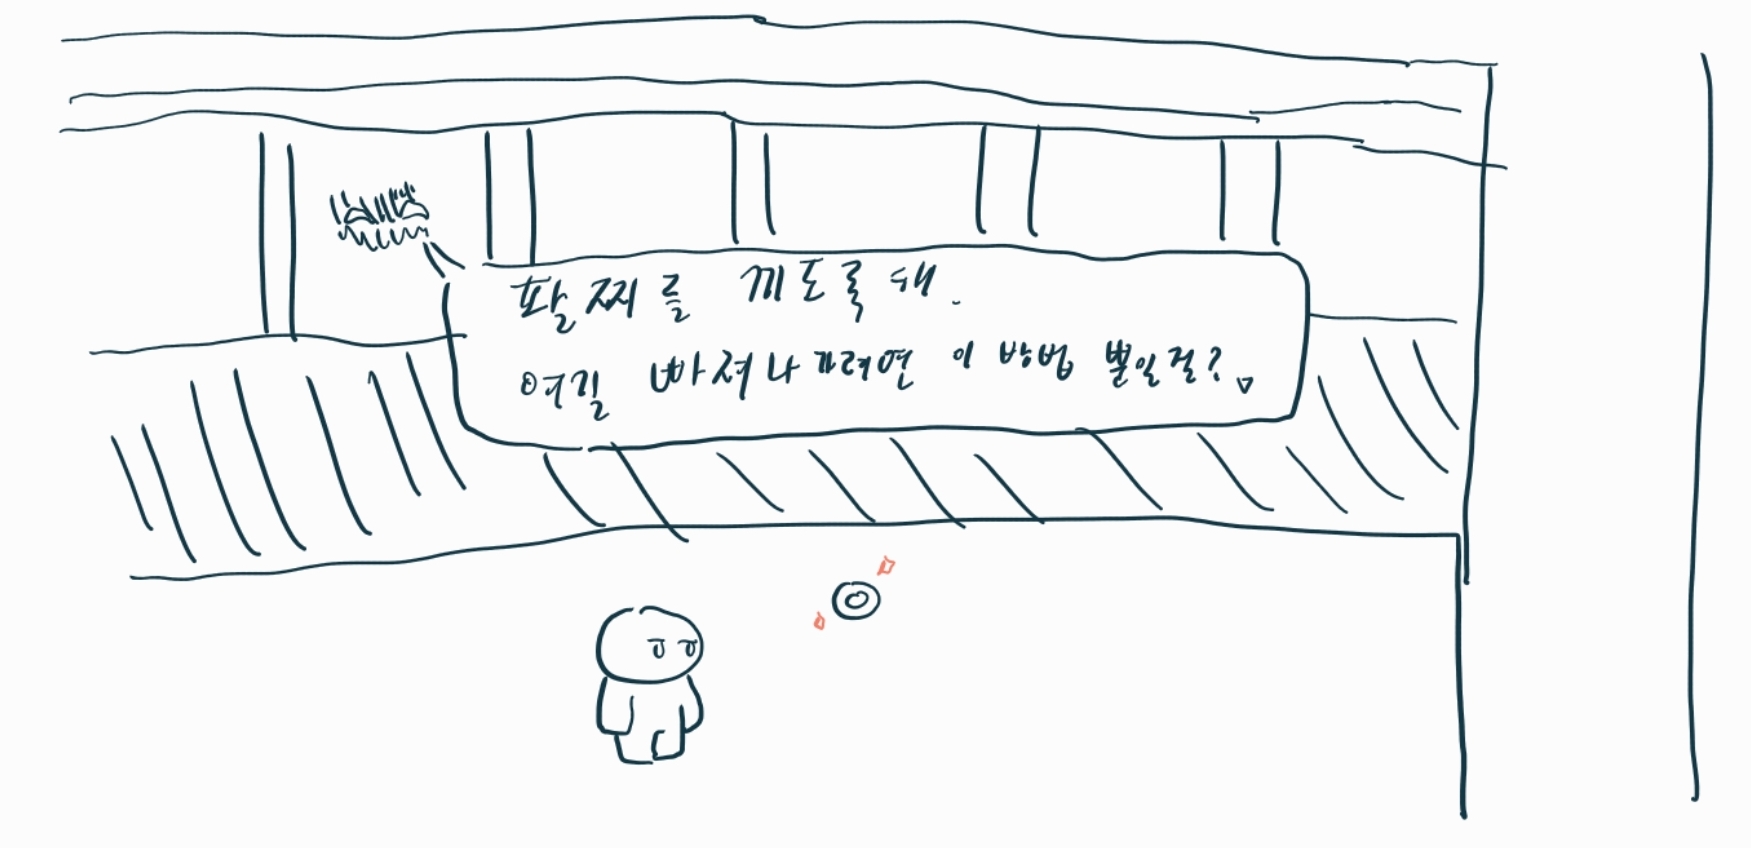 팔찌를 끼도록 해.
여길 빠져나가려면 이 방법 뿐일걸?